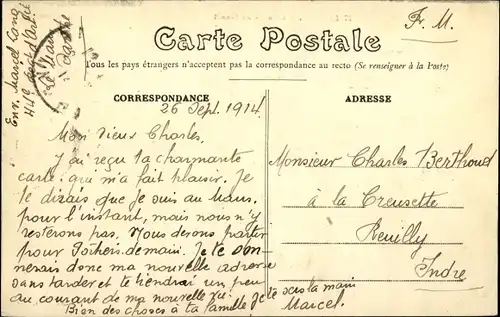 F. M.
Carte Postale
Tous les pays étrangers n'acceptent pas la correspondance au recto (Se renseigner à la Poste)
CORRESPONDANCE
26 Sept. 1914.
Mon vieux Charles,
J'ai reçu ta charmante
carte qui m'a fait plaisir. Je
te dirais que je suis au Mans
pour l'instant, mais nous n'y
resterons pas. Nous devons partir
pour Poitiers demain. Je te don-
nerais donc ma nouvelle adresse
sans tarder et te tiendrai un peu
au courant de ma nouvelle vie.
Bien des choses à ta famille Je te sers la main
Marcel.
ADRESSE
Monsieur Charles Berthoud
à la Creusette
Reuilly
Indre
Env. Marcel